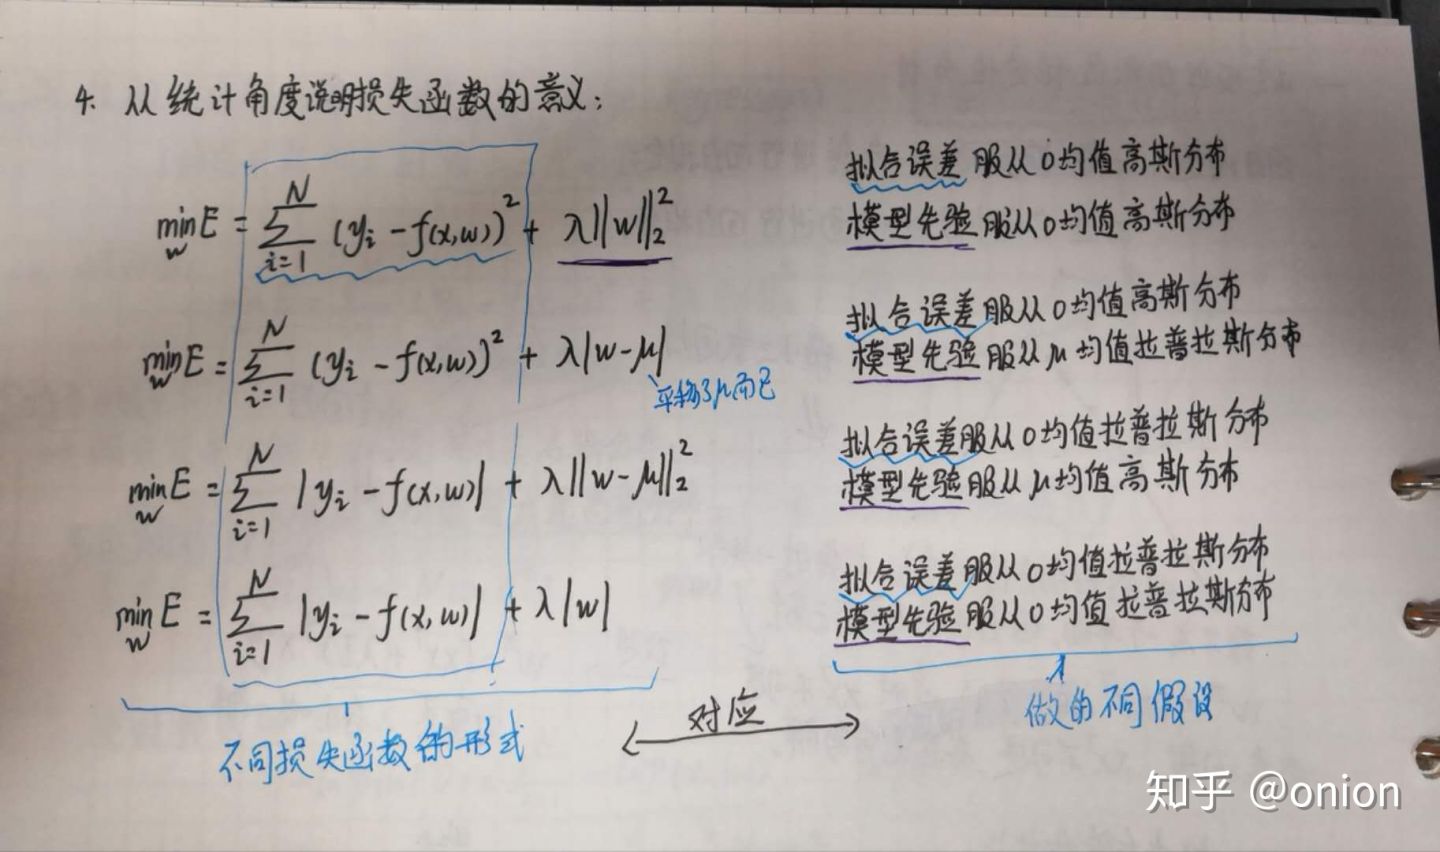 4. 从统计角度说明损失函数的意义：
min_w E = Σ_{i=1}^{N} (y_i - f(x,w))^2 + λ||w||_2^2
拟合误差服从0均值高斯分布
模型先验服从0均值高斯分布
min_w E = Σ_{i=1}^{N} (y_i - f(x,w))^2 + λ|w-μ|
平移了μ而已
拟合误差服从0均值高斯分布
模型先验服从μ均值拉普拉斯分布
min_w E = Σ_{i=1}^{N} |y_i - f(x,w)| + λ||w-μ||_2^2
拟合误差服从0均值拉普拉斯分布
模型先验服从μ均值高斯分布
min_w E = Σ_{i=1}^{N} |y_i - f(x,w)| + λ|w|
拟合误差服从0均值拉普拉斯分布
模型先验服从0均值拉普拉斯分布
不同损失函数的形式
对应
做的不同假设
知乎 @onion